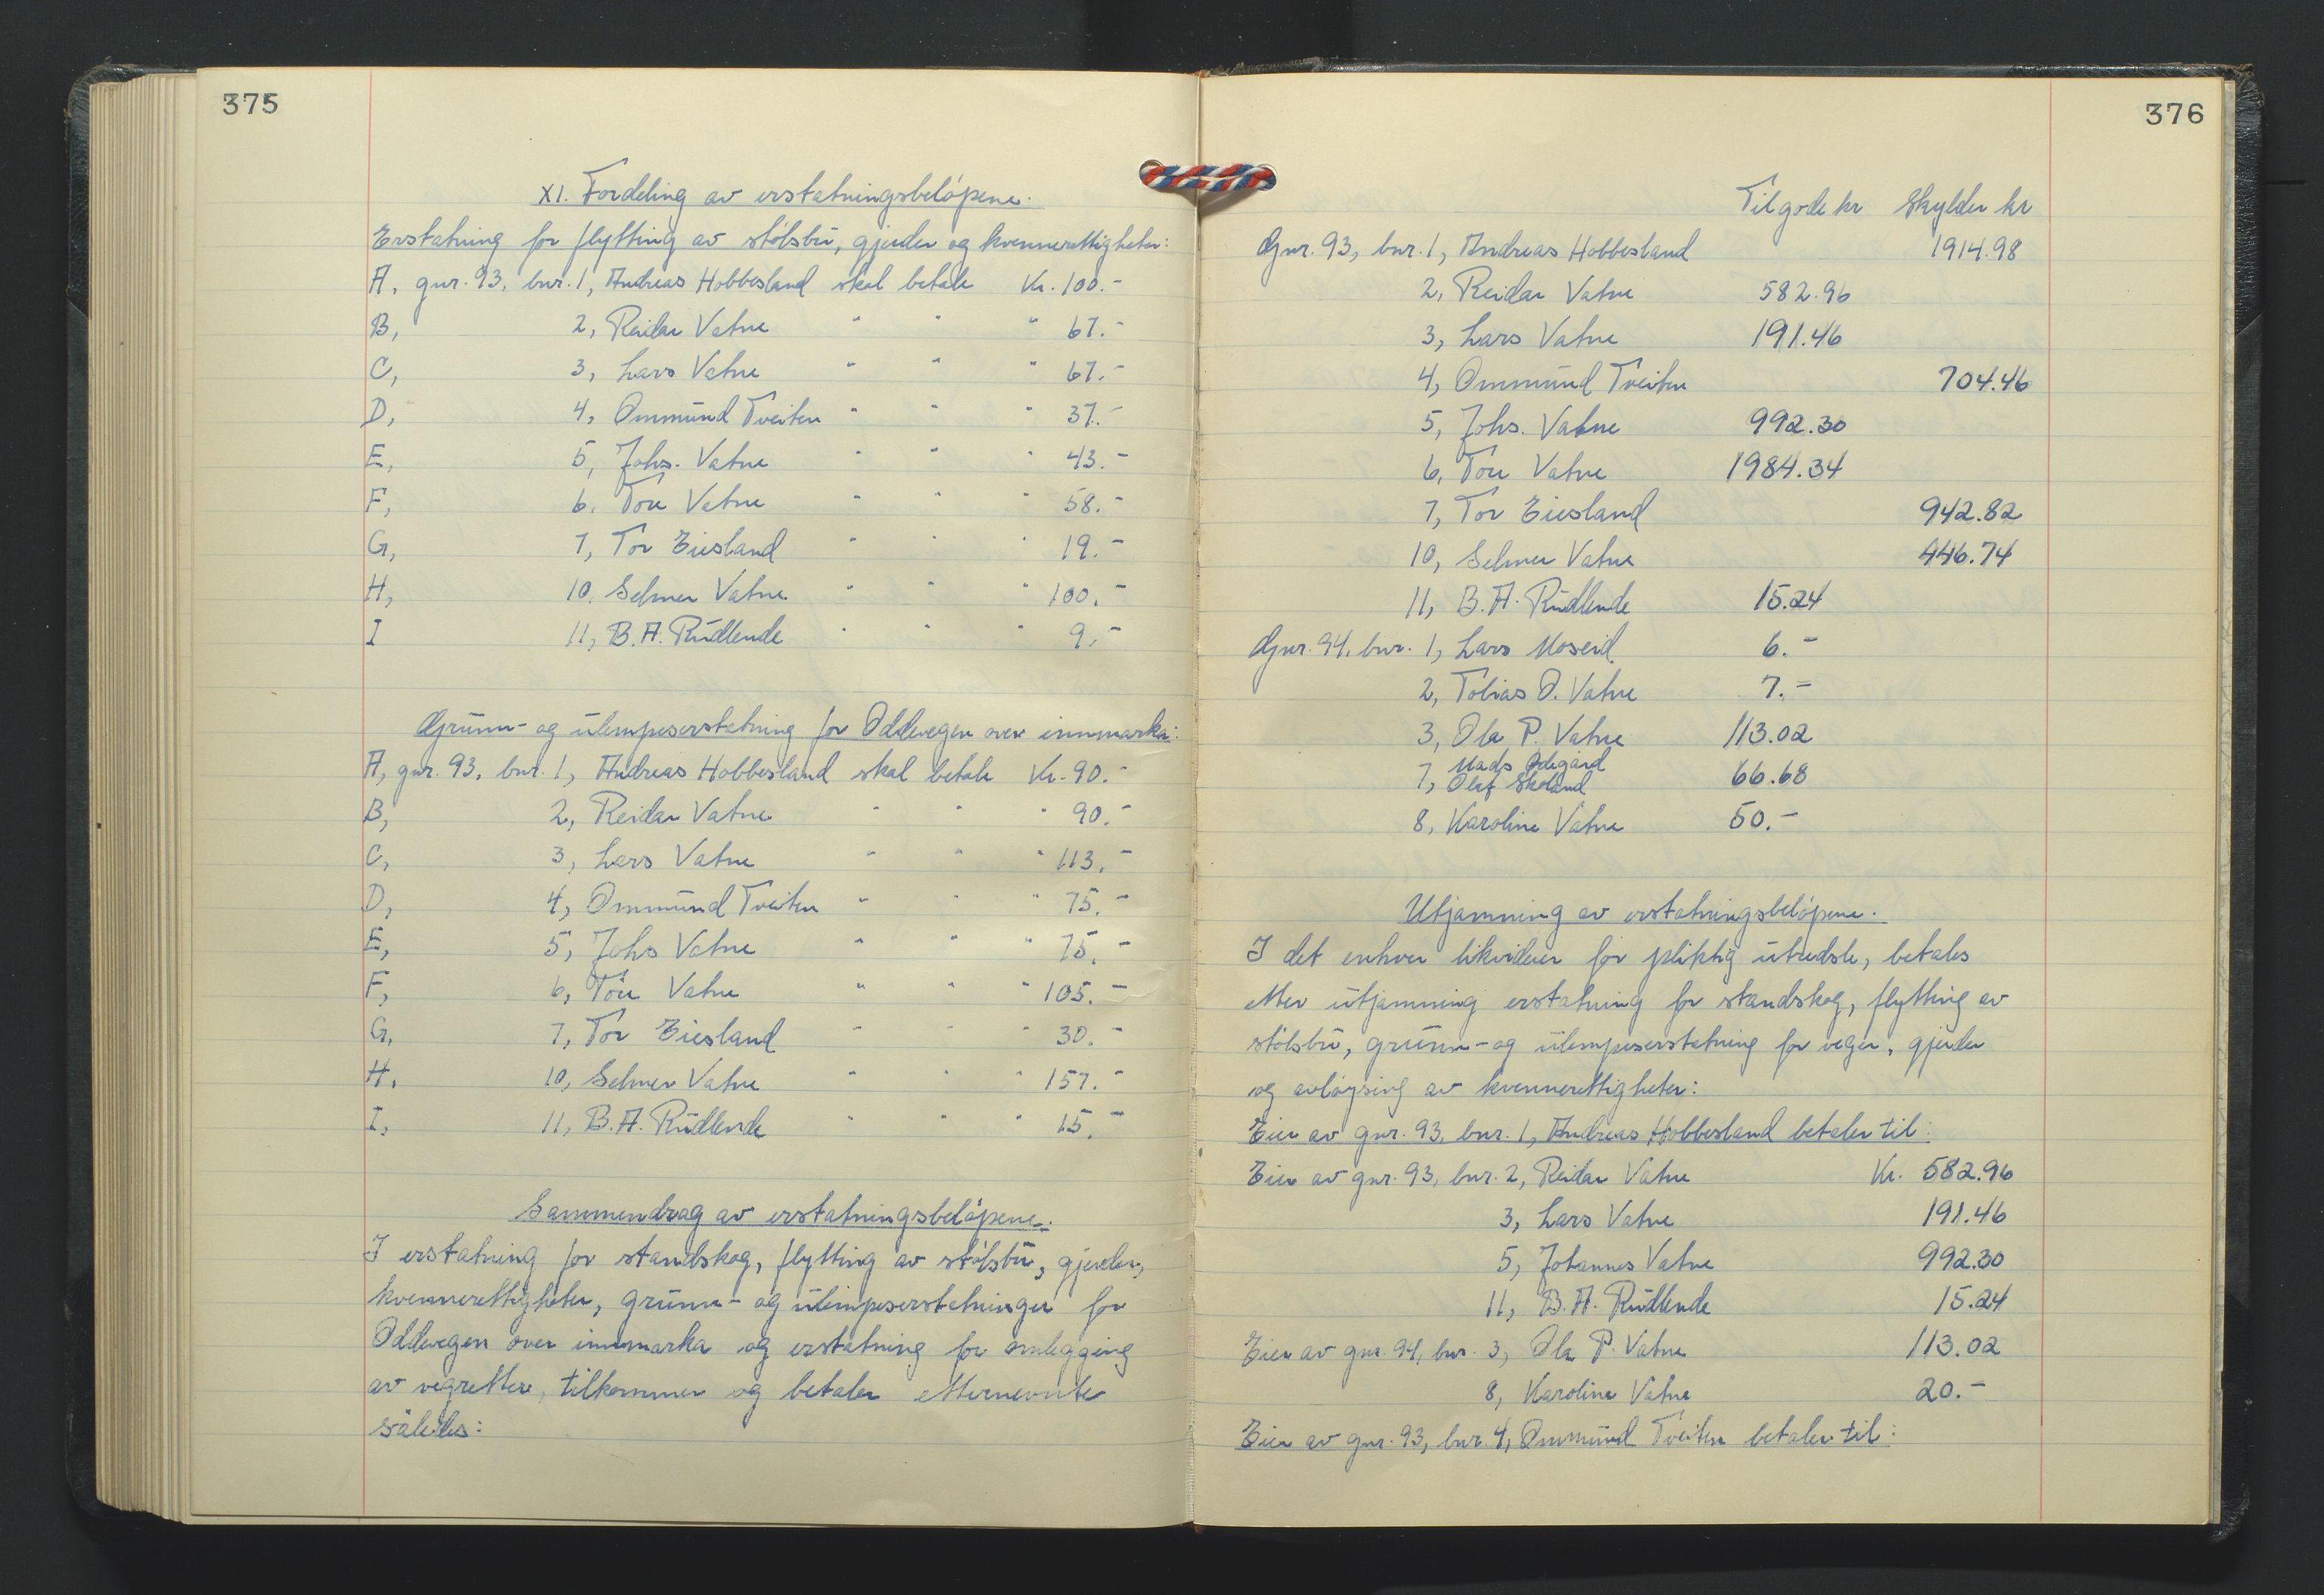 375
XI. Fordeling av erstatningsbeløpene.
Erstatning for flytting av stølsbu, gjerder og kvennerettigheter:
A, gnr. 93, bnr. 1, Andreas Hobbesland skal betale Kr. 100.-
B, 2, Reidar Vatne " " " 67.-
C, 3, Lars Vatne " " " 67.-
D, 4, Ommund Tveiten " " " 37.-
E, 5, Johs. Vatne " " " 43.-
F, 6, Tore Vatne " " " 58.-
G, 7, Tor Eiesland " " " 19.-
H, 10, Selmer Vatne " " " 100.-
I 11, B.A. Rudlende " " " 9.-
Grunn- og ulempeserstatning for Oddevegen over innmarka:
A, gnr. 93, bnr. 1, Andreas Hobbesland skal betale Kr. 90.-
B, 2, Reidar Vatne " " " 90.-
C, 3, Lars Vatne " " " 113.-
D, 4, Ommund Tveiten " " " 75.-
E, 5, Johs Vatne " " " 75.-
F, 6, Tore Vatne " " " 105.-
G, 7, Tor Eiesland " " " 30.-
H, 10, Selmer Vatne " " " 157.-
I, 11, B.A. Rudlende " " " 15.-
Sammendrag av erstatningsbeløpene.
I erstatning for standskog, flytting av stølsbu, gjerder,
kvennerettigheter, grunn- og ulempeserstatninger for
Oddevegen over innmarka og erstatning for omlegging
av vegretter, tilkommer og betaler etternevnte
således:
376
Tilgode kr Skylder kr
Gnr. 93, bnr. 1, Andreas Hobbesland 1914.98
2, Reidar Vatne 582.96
3, Lars Vatne 191.46
4, Ommund Tveiten 704.46
5, Johs. Vatne 992.30
6, Tore Vatne 1984.34
7, Tor Eiesland 942.82
10, Selmer Vatne 446.74
11, B.A. Rudlende 15.24
Gnr. 94, bnr. 1, Lars Moseid 6.-
2, Tobias O. Vatne 7.-
3, Ola P. Vatne 113.02
Mads Ødegård
7, Olaf Skoland 66.68
8, Karoline Vatne 50.-
Utjamning av erstatningsbeløpene.
I det enhver likviderer for pliktig utredsle, betales
etter utjamning erstatning for standskog, flytting av
stølsbu, grunn- og ulempeserstatning for veger, gjerder
og avløysing av kvennerettigheter:
Eier av gnr. 93, bnr. 1, Andreas Hobbesland betaler til:
Eier av gnr. 93, bnr. 2, Reidar Vatne Kr. 582.96
3, Lars Vatne 191.46
5, Johannes Vatne 992.30
11, B.A. Rudlende 15.24
Eier av gnr. 94, bnr. 3, Ola P. Vatne 113.02
8, Karoline Vatne 20.-
Eier av gnr. 93, bnr. 4, Ommund Tveiten betaler til: